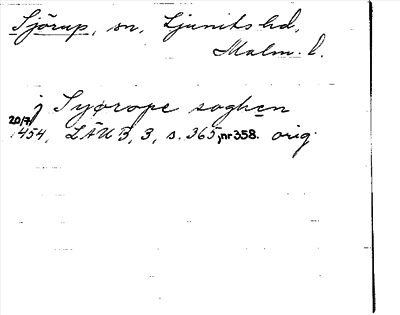 Sjörup, sn, Ljunits hd,
Malm. l.
j Syørope soghen
20/7 1454, LÄUB, 3, s. 365, nr 358. orig.